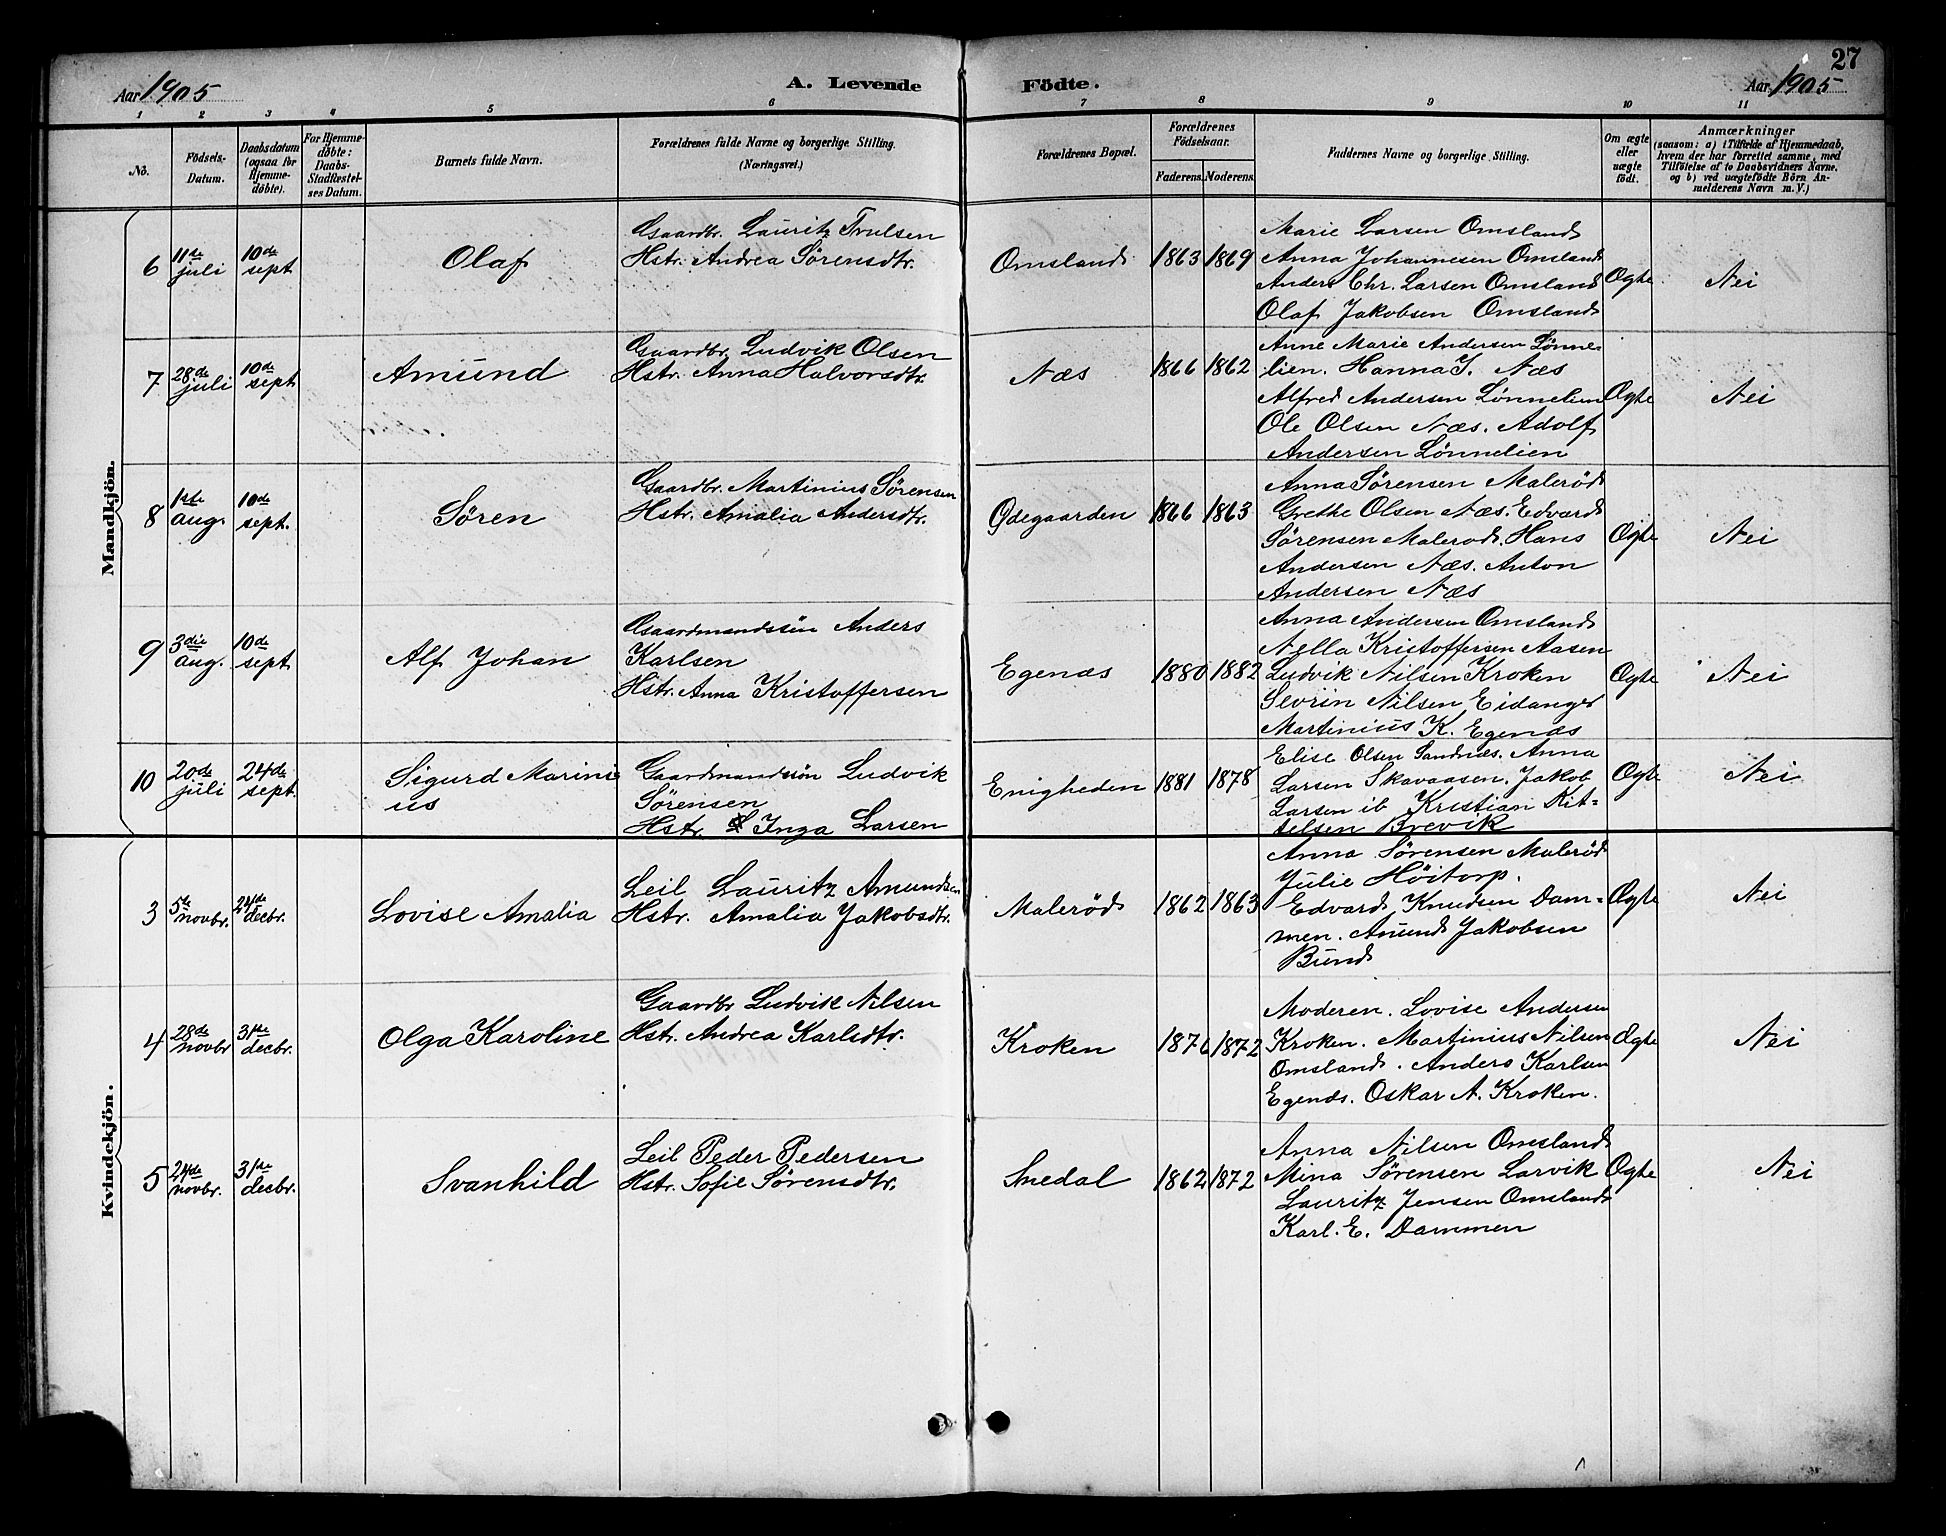 27
Aar 1905 A. Levende Födte. Aar 1905
1 2 3 4 5 6 7 8 9 10 11
No.
Födsels-Datum.
Daabsdatum (ogsaa for Hjemme-döbte).
For Hjemme-döbte: Daabs-Stadfæstel-ses Datum.
Barnets fulde Navn.
Forældrenes fulde Navne og borgerlige Stilling. (Næringsvei.)
Forældrenes Bopæl.
Forældrenes Födselsaar.
Faderens. Moderens.
Faddernes Navne og borgerlige Stilling.
Om ægte eller uægte födt.
Anmærkninger
(saasom: a) i Tilfælde af Hjemmedaab,
hvem der har forrettet samme, med
Tilföielse af to Daabsvidners Navne,
og b) ved uægtefödte Börn An-
melderens Navn m. V.)
Mandkjön.
6 11te juli 10de sept Olaf
Gaardbr. Lauritz Trulsen
Hstr. Andrea Sörensdtr.
Omsland 1863 1869
Marie Larsen Omsland
Anna Johannesen Omsland
Anders Chr. Larsen Omsland
Olaf Jakobsen Omsland
Ægte Nei
7 28de juli 10de sept Amund
Gaardbr. Ludvik Olsen
Hstr. Anna Halvorsdtr.
Næs 1866 1862
Anne Marie Andersen Lönne-
lien. Hanna J. Næs
Alfred Andersen Lönnelien
Ole Olsen Næs. Adolf
Andersen Lönnelien
Ægte Nei
8 1ste aug. 10de sept. Sören
Gaardbr. Martinius Sörensen
Hstr. Amalia Andersdtr.
Ödegaarden 1866 1863
Anna Sörensen Maleröd
Grethe Olsen Næs. Edvard
Sörensen Maleröd. Hans
Andersen Næs. Anton
Andersen Næs
Ægte Nei
9 3die aug. 10de sept Alf Johan
Gaardmandssön Anders
Karlsen
Hstr. Anna Kristoffersen
Egenæs 1880 1882
Anna Andersen Omsland
Nella Kristoffersen Aasen
Ludvik Nilsen Kroken
Sevrin Nilsen Eidanger
Martinius K. Egenæs
Ægte Nei
10 20de juli 24de sept. Sigurd Marini
us
Gaardmandssön Ludvik
Sörensen
Hstr. Inga Larsen
Enigheden 1881 1878
Elise Olsen Sandnæs. Anna
Larsen Skavaasen. Jakob
Larsen ib Kristian Kit-
telsen Brevik
Ægte Nei
Kvindekjön.
3 5te novbr. 24de decbr. Lovise Amalia
Leil Lauritz Amundsen
Hstr. Amalia Jakobsdtr.
Maleröd 1862 1863
Anna Sörensen Maleröd
Julie Höitorp.
Edvard Knudsen Dam-
men. Amund Jakobsen
Bund
Ægte Nei
4 28de novbr 31te decbr. Olga Karoline
Gaardbr Ludvik Nilsen
Hstr. Andrea Karlsdtr.
Kroken 1876 1872
Moderen. Lovise Andersen
Kroken. Martinius Nilsen
Omsland. Anders Karlsen
Egenæs. Oskar A. Kroken.
Ægte Nei
5 24de novbr. 31te decbr. Svanhild
Leil Peder Pedersen
Hstr. Sofie Sörensdtr.
Snedal 1862 1872
Anna Nilsen Omsland
Mina Sörensen Larvik
Lauritz Jensen Omsland
Karl. E. Dammen
Ægte Nei